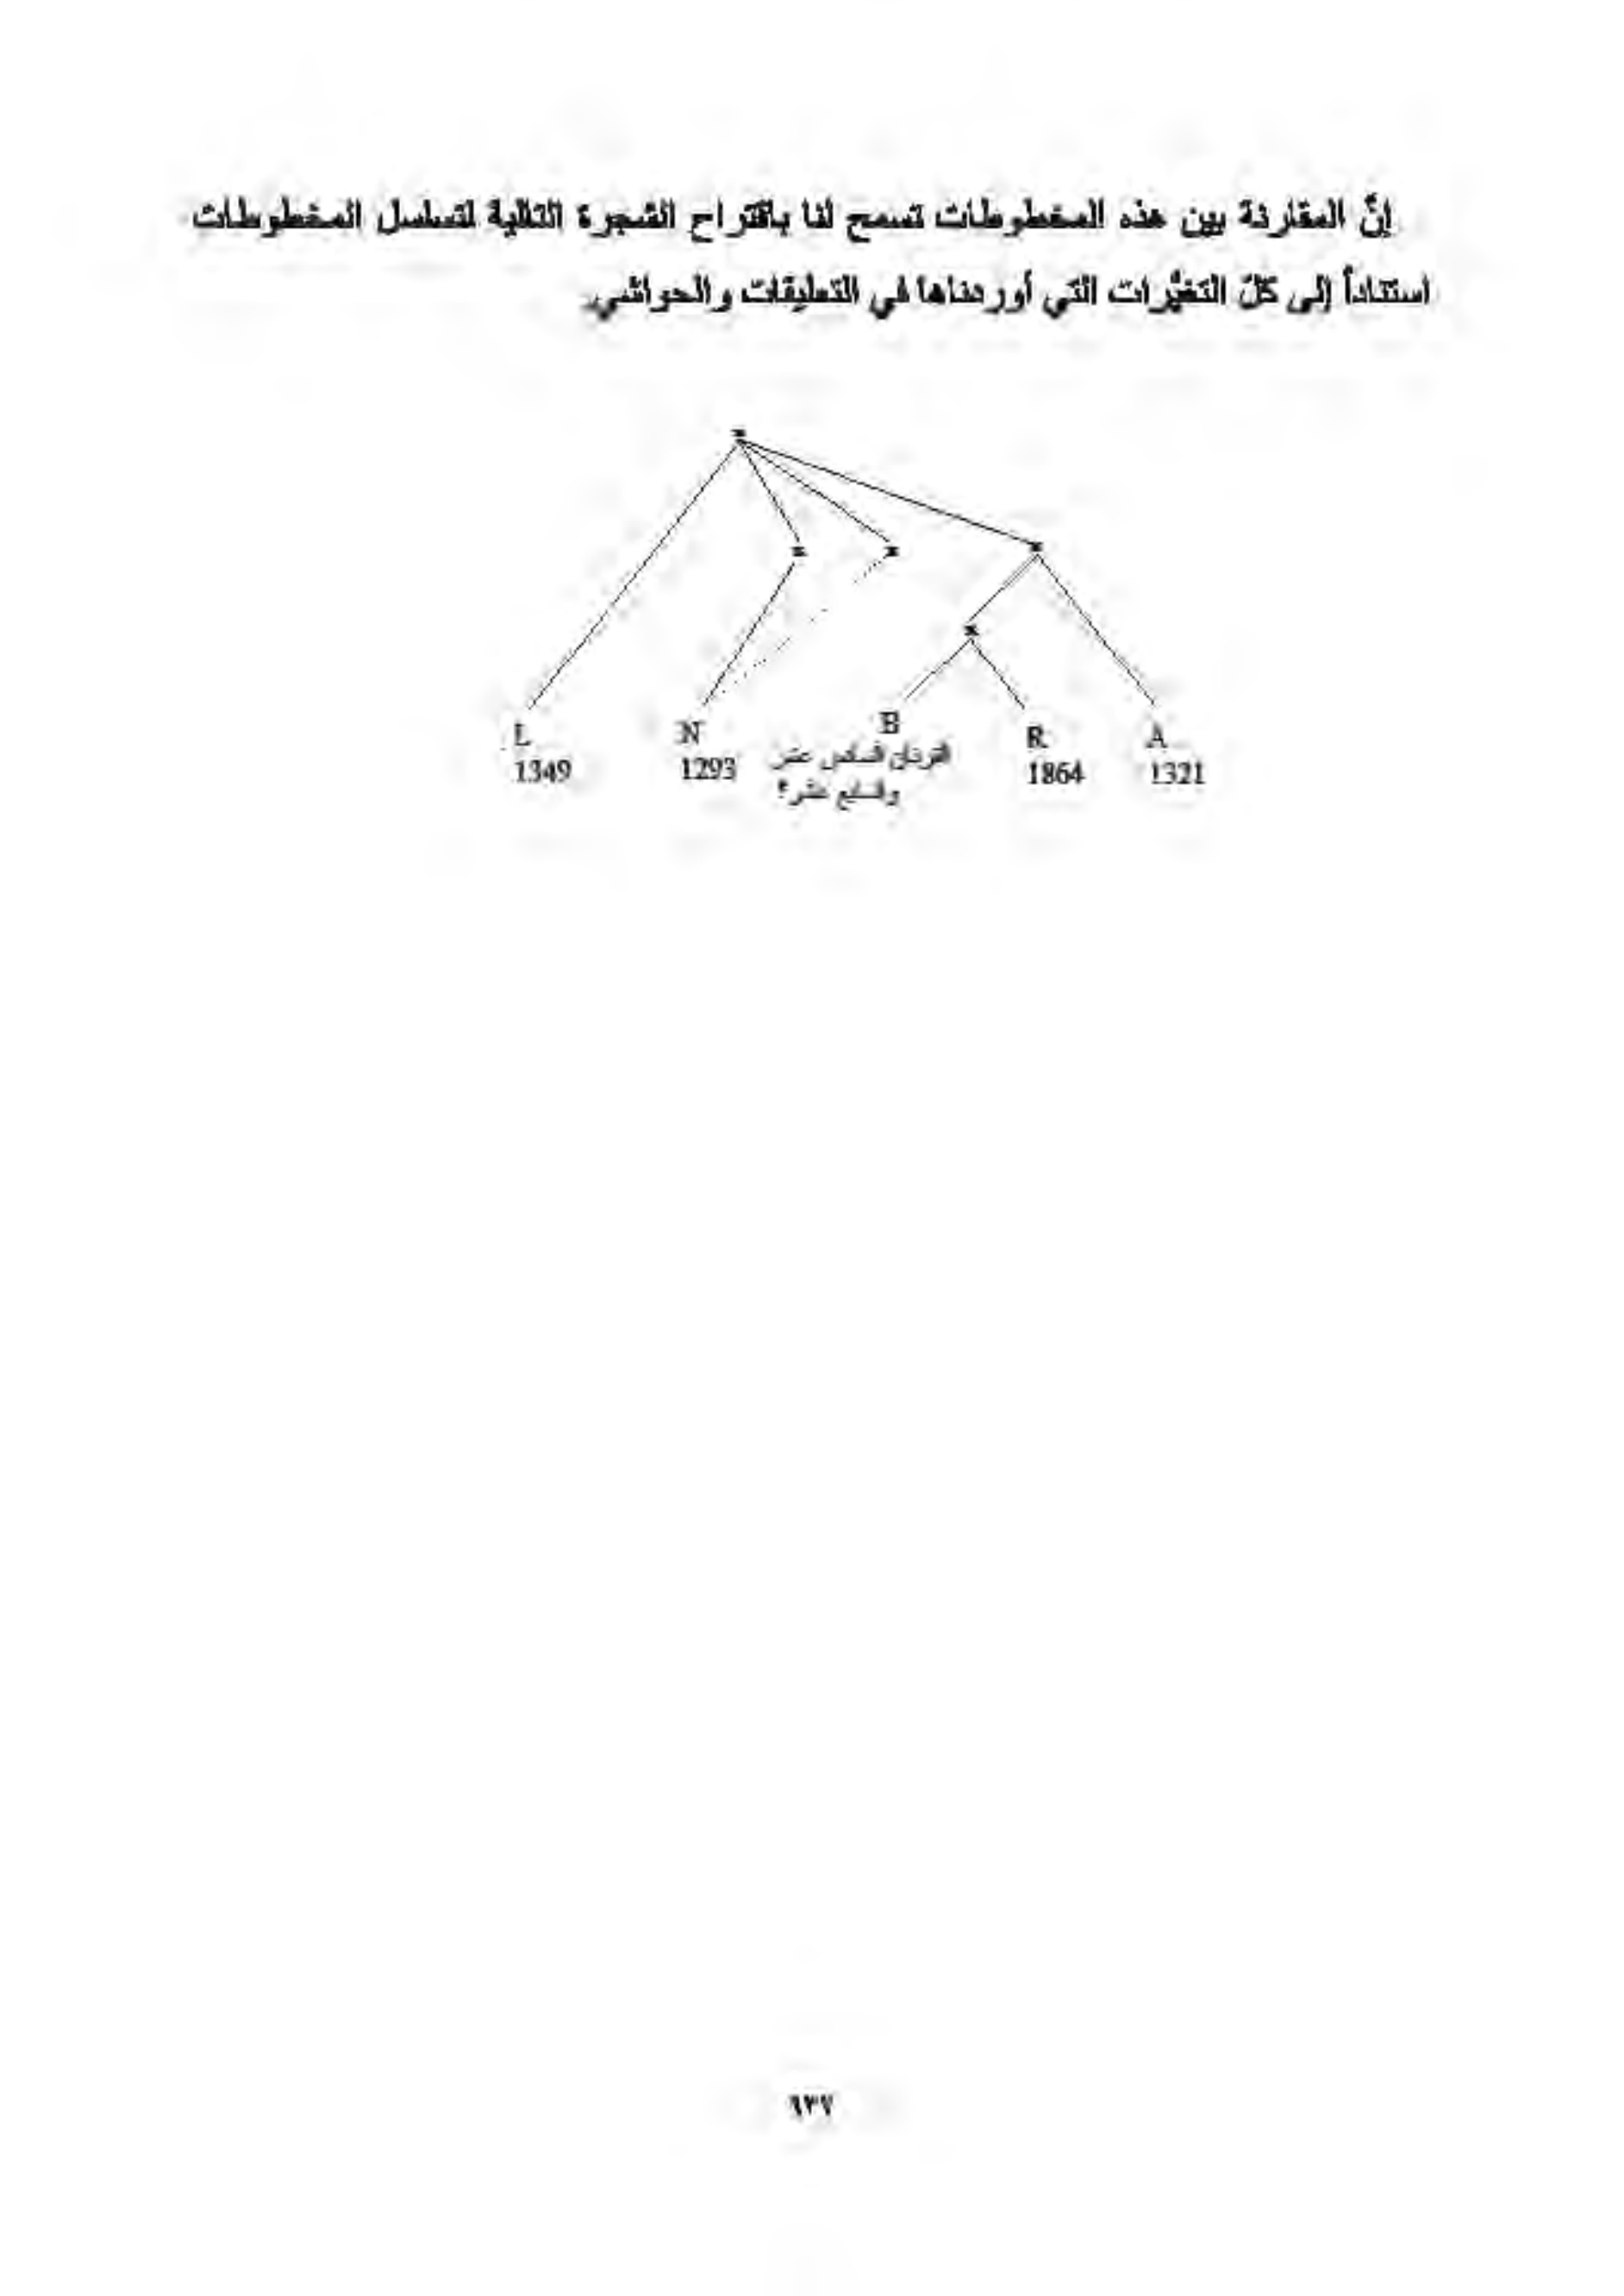 إنّ المقارنة بين هذه المخطوطات تسمح لنا باقتراح الشجرة التالية لتسلسل المخطوطات
استناداً إلى كلّ التغيُّرات التي أوردناها في التعليقات والحواشي.
L
1349
N
1293
B
القرنان السادس عشر
والسابع عشر؟
R
1864
A
1321
٦٣٧